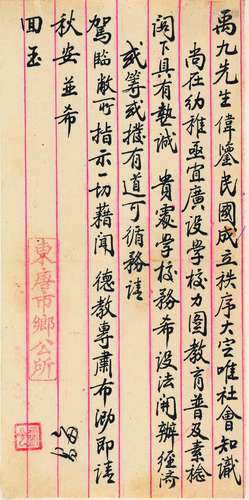 禹九先生偉鑒民國成立秩序大定唯社會知識
尚在幼稚亟宜廣设学校力圖教育普及素稔
阁下具有熱诚 貴處学校務希设法開辦經济
或筹或撥有道可循務请
駕臨敝所指示一切藉闻 德教專肅布泐即请
秋安並希
回玉
東唐市鄉公所